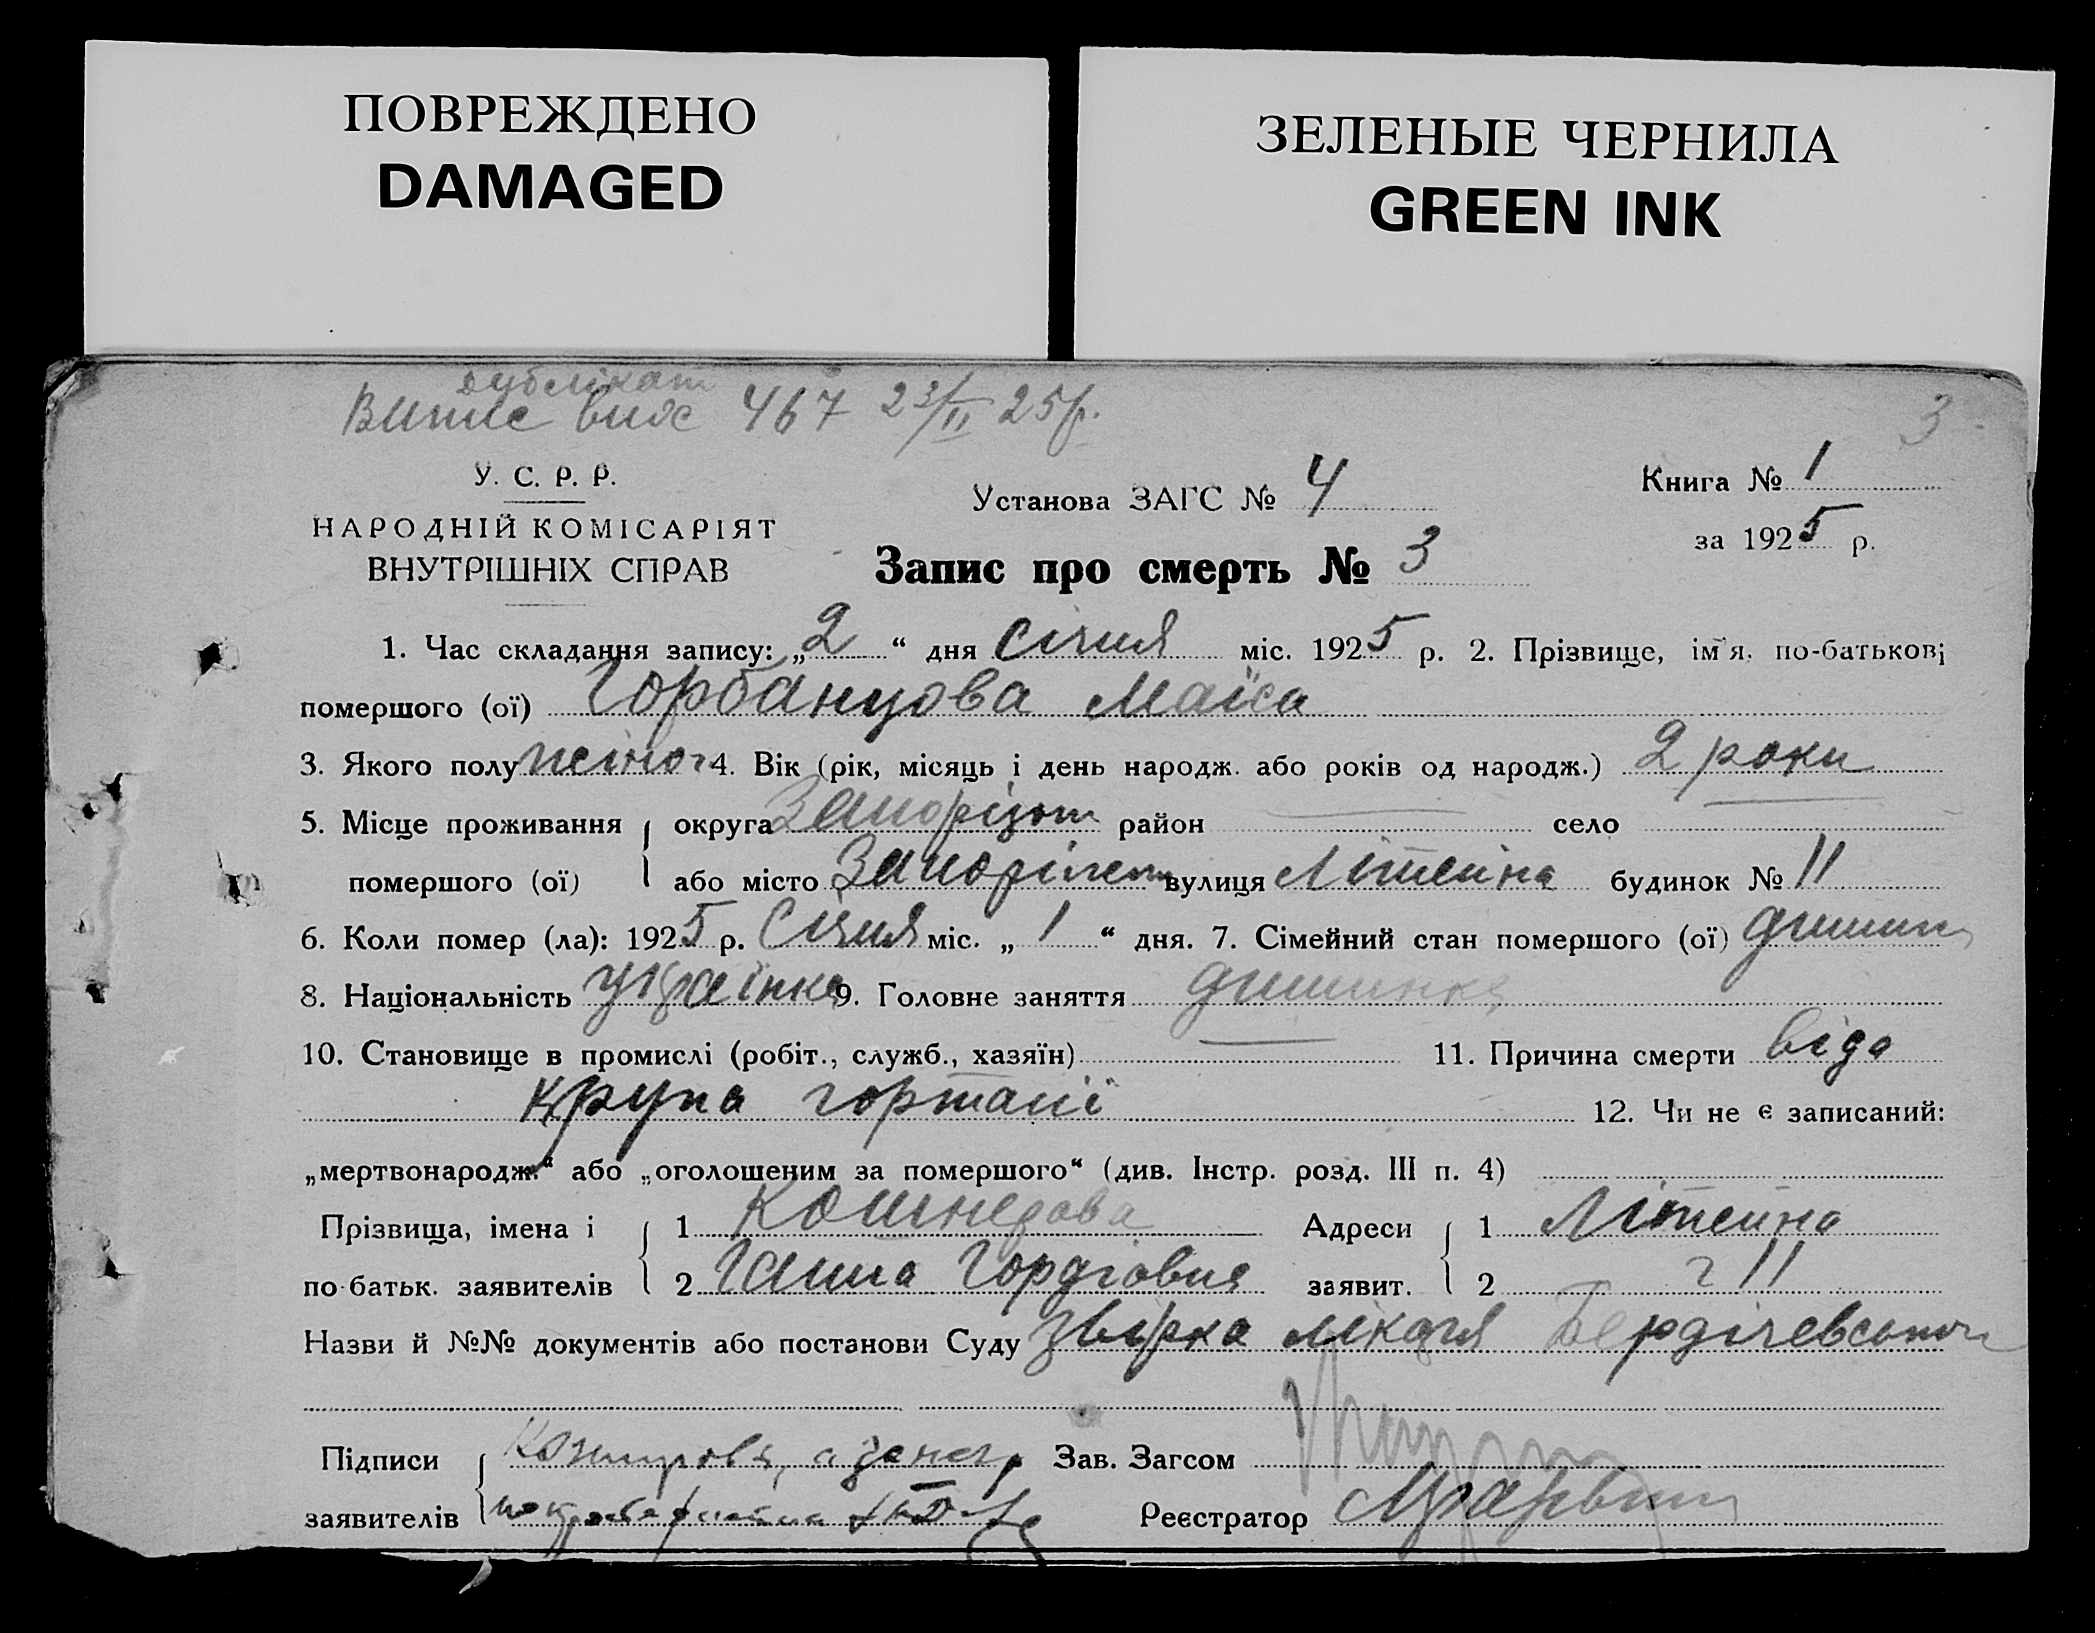 ПОВРЕЖДЕНО
DAMAGED
ЗЕЛЕНЫЕ ЧЕРНИЛА
GREEN INK
дублікат
Випис видс 467 23/II 25р.
3
У. С. Р. Р.
НАРОДНІЙ КОМІСАРІЯТ
ВНУТРІШНІХ СПРАВ
Установа ЗАГС № 4
Книга № 1
за 1925 р.
Запис про смерть № 3
1. Час складання запису: „2“ дня січня міс. 1925 р. 2. Прізвище, ім'я, по-батькові
помершого (ої) Горбанцова Маіса
3. Якого полу жіноч 4. Вік (рік, місяць і день народж. або років од народж.) 2 роки
5. Місце проживання округа район село
помершого (ої) або місто Запоріжжя вулиця Літейна будинок № 11
6. Коли помер (ла): 1925 р. Січня міс. „1“ дня. 7. Сімейний стан помершого (ої)
8. Національність українка 9. Головне заняття
10. Становище в промислі (робіт., служб., хазяїн) 11. Причина смерти від
крупа гортані
12. Чи не є записаний:
„мертвонародж.“ або „оголошеним за помершого“ (див. Інстр. розд. III п. 4)
Прізвища, імена і 1 Адреси 1 Літейна
по-батьк. заявителів 2 Ганна Гордіовна заявит. 2 11
Назви й №№ документів або постанови Суду лікаря Бердічевського
Підписи Зав. Загсом
заявителів Реєстратор